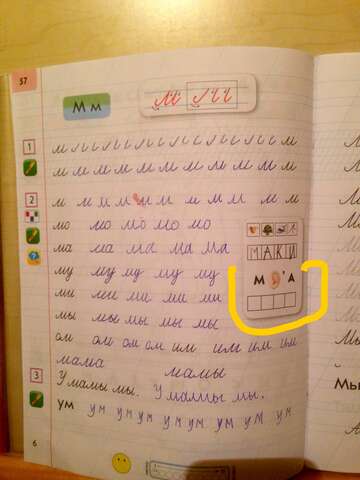 57
М м
м м
1
м м м м м м м м м м м м
м м м м м м м м м м м
2
м м м м м м м м м м м
мо мо мо мо мо
ма ма ма ма ма
МАКИ
му му му му му
М ' А
ми ми ми ми ми
мы мы мы мы мы
ом ом ом ом им им им им
мама мамы
3
У мамы мы. У мамы мы.
ум ум ум ум ум ум ум ум ум
6
Мы